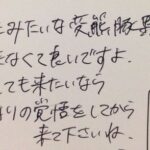 みたいな変態豚野
なくて良いですよ。
ても来たいなら
りの覚悟をしてから
来て下さいね。